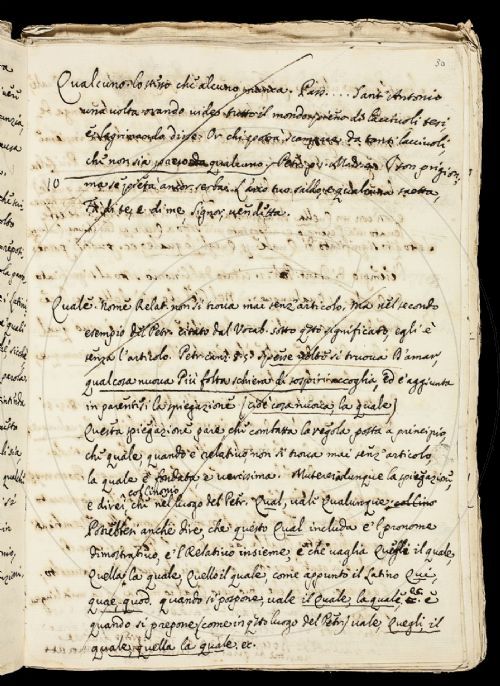 30
Qualcuno. lo stesso che alcuno. Pass.... Sant'Antonio
una volta orando vide tutto il mondo pieno di lacciuoli tesi
e lagrimando disse. Or chi potrà scampare da tanti lacciuoli
che non sia preso da qualcuno. Petr. p. Madrig. I son prigion,
10 ma se pietà ancor serba L'arco tuo saldo, e qualcuna saetta,
Fà di te, e di me Signor, vendetta.
Quale. Nome Relat. non si trova mai senz'articolo, ma nel secondo
esempio del Petr. citato dal Vocab. sotto questo significato, egli è
senza l'articolo. Petr. canz. Spesse volte si truova D'amar
qual cosa nuova Più folta schiera di sospir accoglia, Ed è aggiunta
in parentesi la spiegazione (cioè cosa nuova, la quale)
Questa spiegazione pare che combatta la regola posta a principio,
che quale quando è relativo non si trova mai senz'articolo,
la quale è fondata e verissima. Muterei dunque la spiegazione,
col Cinonio
e direi che nel luogo del Petr. Qual, vale Qualunque, col Cino
Potrebbesi anche dire, che questo Qual includa e 'l pronome
dimostrativo, e 'l Relativo insieme, e che vaglia Quegli il quale,
Quella, la quale, Quello il quale, come appunto il Latino Qui,
quae quod. quando si pospone, vale il Quale, la quale ec. e
quando si prepone (come in questo luogo del Petr.) vale, Quegli, il
quale, quella la quale. ec.